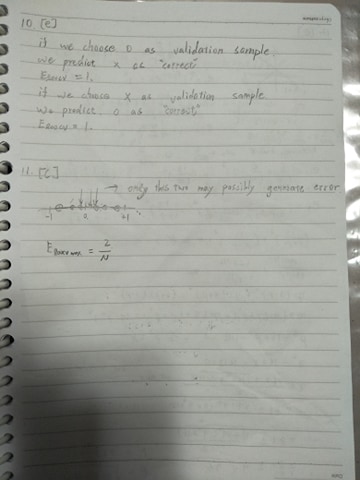 10. [e]
if we choose o as validation sample
we predict x as "correct"
Eloocv = 1.
if we choose x as validation sample
we predict o as "correct"
Eloocv = 1.
11. [c]
→ only this two may possibly generate error
-1
+1
= 2/N